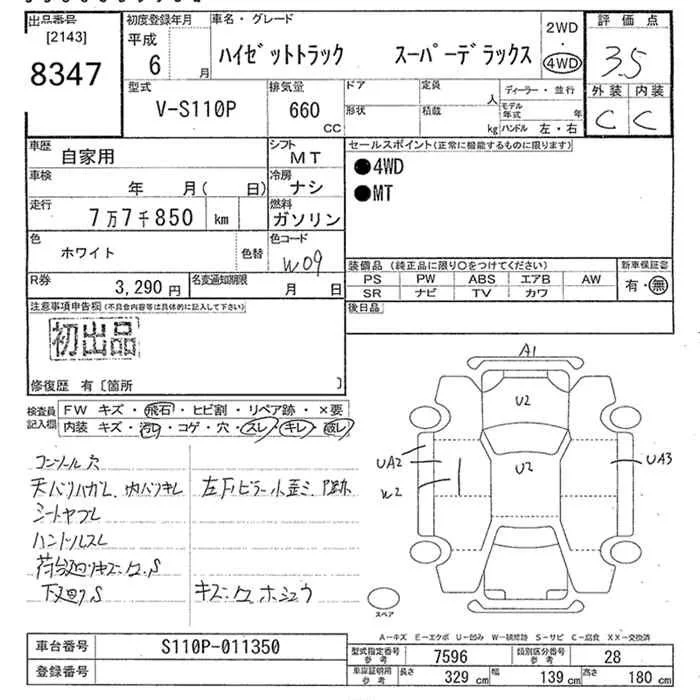 出品番号 [2143] 8347
初度登録年月 平成 6 月
車名・グレード ハイゼットトラック スーパーデラックス
2WD・4WD
評価点 3.5
型式 V-S110P
排気量 660 CC
ドア 定員 人
形状 積載 kg
ディーラー・並行
モデル年式 年
ハンドル 左・右
外装 内装
C C
車歴 自家用
シフト MT
セールスポイント(正常に機能するものに限ります)
●4WD
●MT
車検 年 月( 日)
冷房 ナシ
走行 7万7千850 km
燃料 ガソリン
色 ホワイト 色替
色コード W09
装備品(純正品に限り○をつけてください)
新車保証書 有・無
PS PW ABS エアB AW
SR ナビ TV カワ
R券 3,290 円
名変通知期限 月 日
後日品
注意事項申告欄(不具合内容等は具体的に記入して下さい)
初出品
修復歴 有〔箇所 〕
検査員記入欄
FW キズ・飛石・ヒビ割・リペア跡・×要
内装 キズ・汚レ・コゲ・穴・スレ・キレ・破レ
コンソール穴
天バリハガレ、内バリキレ
左下ピラー小歪ミ、跡
シートヤブレ
ハンドルスレ
荷台廻りキズ、凹、S
下廻りS
キズ・凹 ホシュウ
A1
U2
U2
UA2
W2
UA3
スペア
A-キズ E-エクボ U-凹み W-補修跡 S-サビ C-腐食 XX-交換済
車台番号 S110P-011350
登録番号
型式指定番号 参考 7596
類別区分番号 参考 28
車庫証明用 参考 長さ 329 cm 幅 139 cm 高さ 180 cm